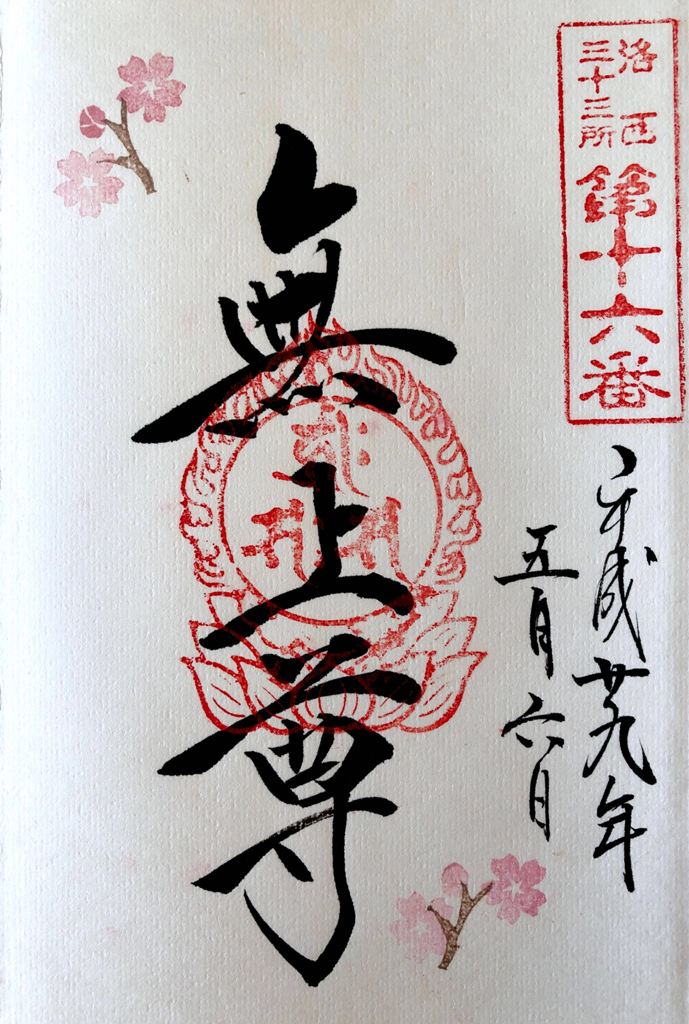 洛西
三十三所
第十六番
平成廿九年
五月六日
無上尊